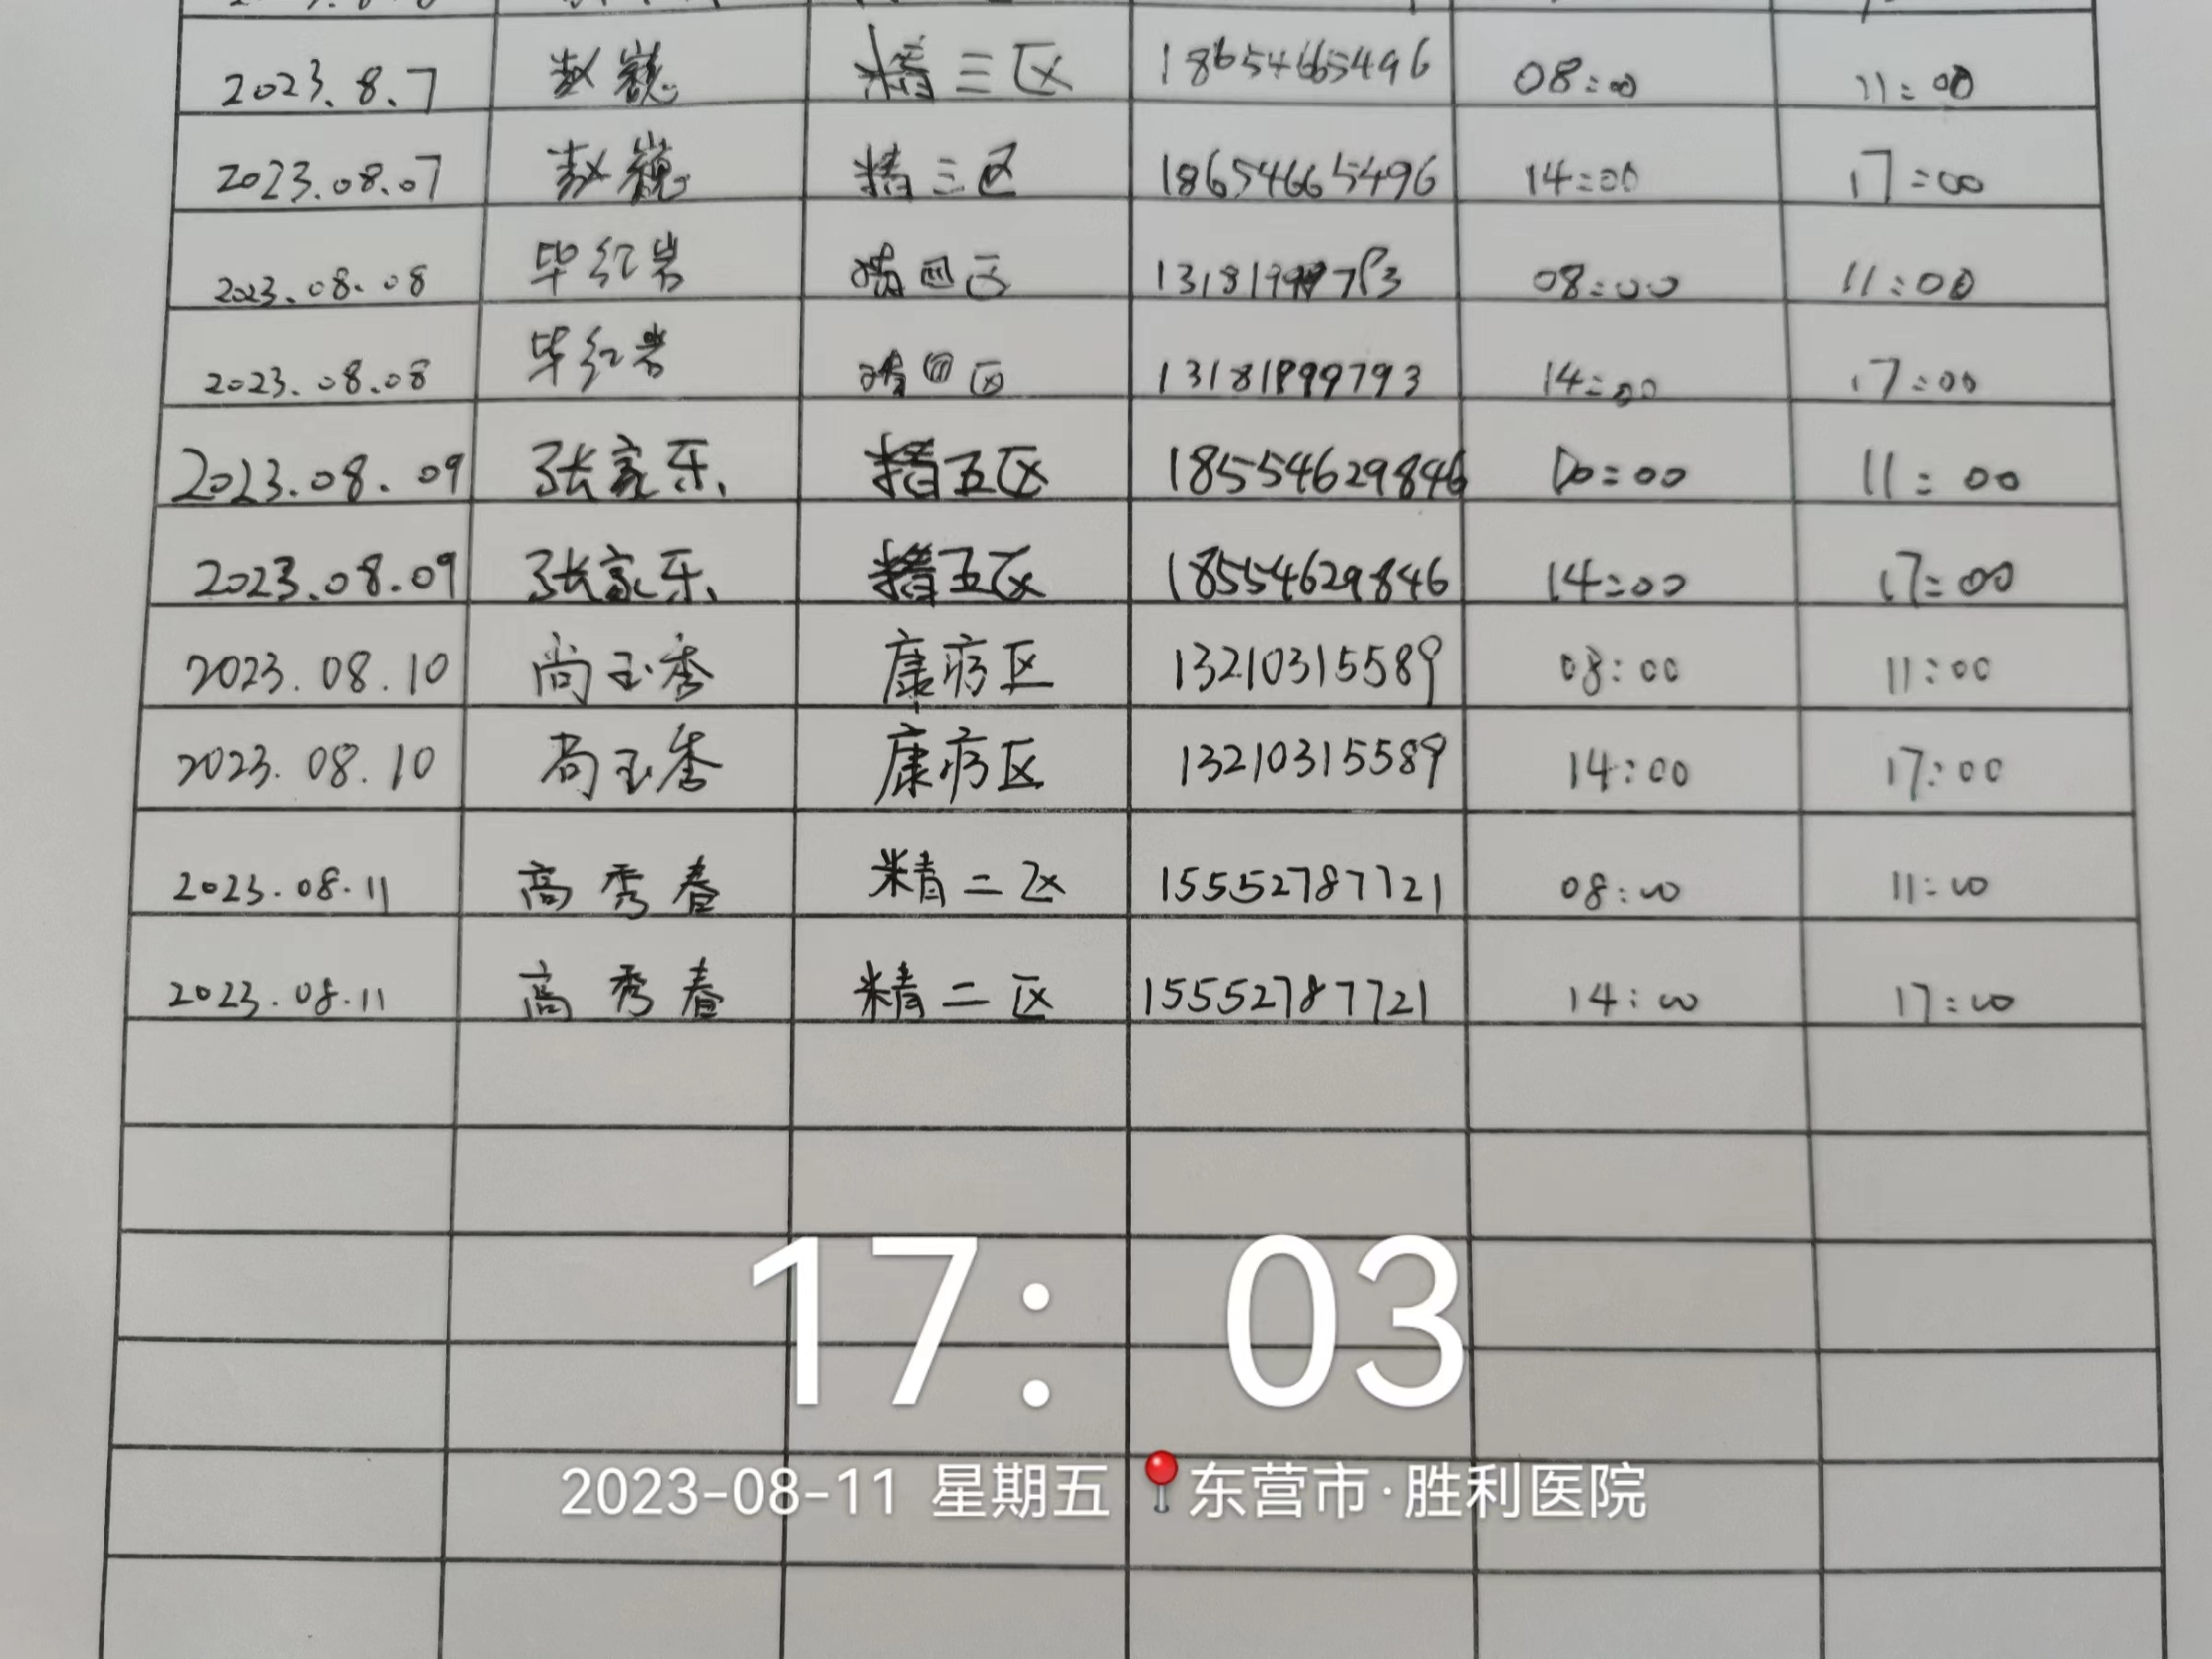 2023.8.7 赵巍 精三区 18654665496 08:00 11:00
2023.08.07 赵巍 精三区 18654665496 14:00 17:00
2023.08.08 毕红岩 精四区 08:00 11:00
2023.08.08 毕红岩 精四区 13181999793 14:00 17:00
2023.08.09 张家乐 精五区 18554629846 11:00
2023.08.09 张家乐 精五区 18554629846 14:00 17:00
2023.08.10 尚玉秀 康疗区 13210315589 08:00 11:00
2023.08.10 尚玉秀 康疗区 13210315589 14:00 17:00
2023.08.11 高秀春 精二区 15552787721 08:00 11:00
2023.08.11 高秀春 精二区 15552787721 14:00 17:00
17:03
2023-08-11 星期五 东营市·胜利医院